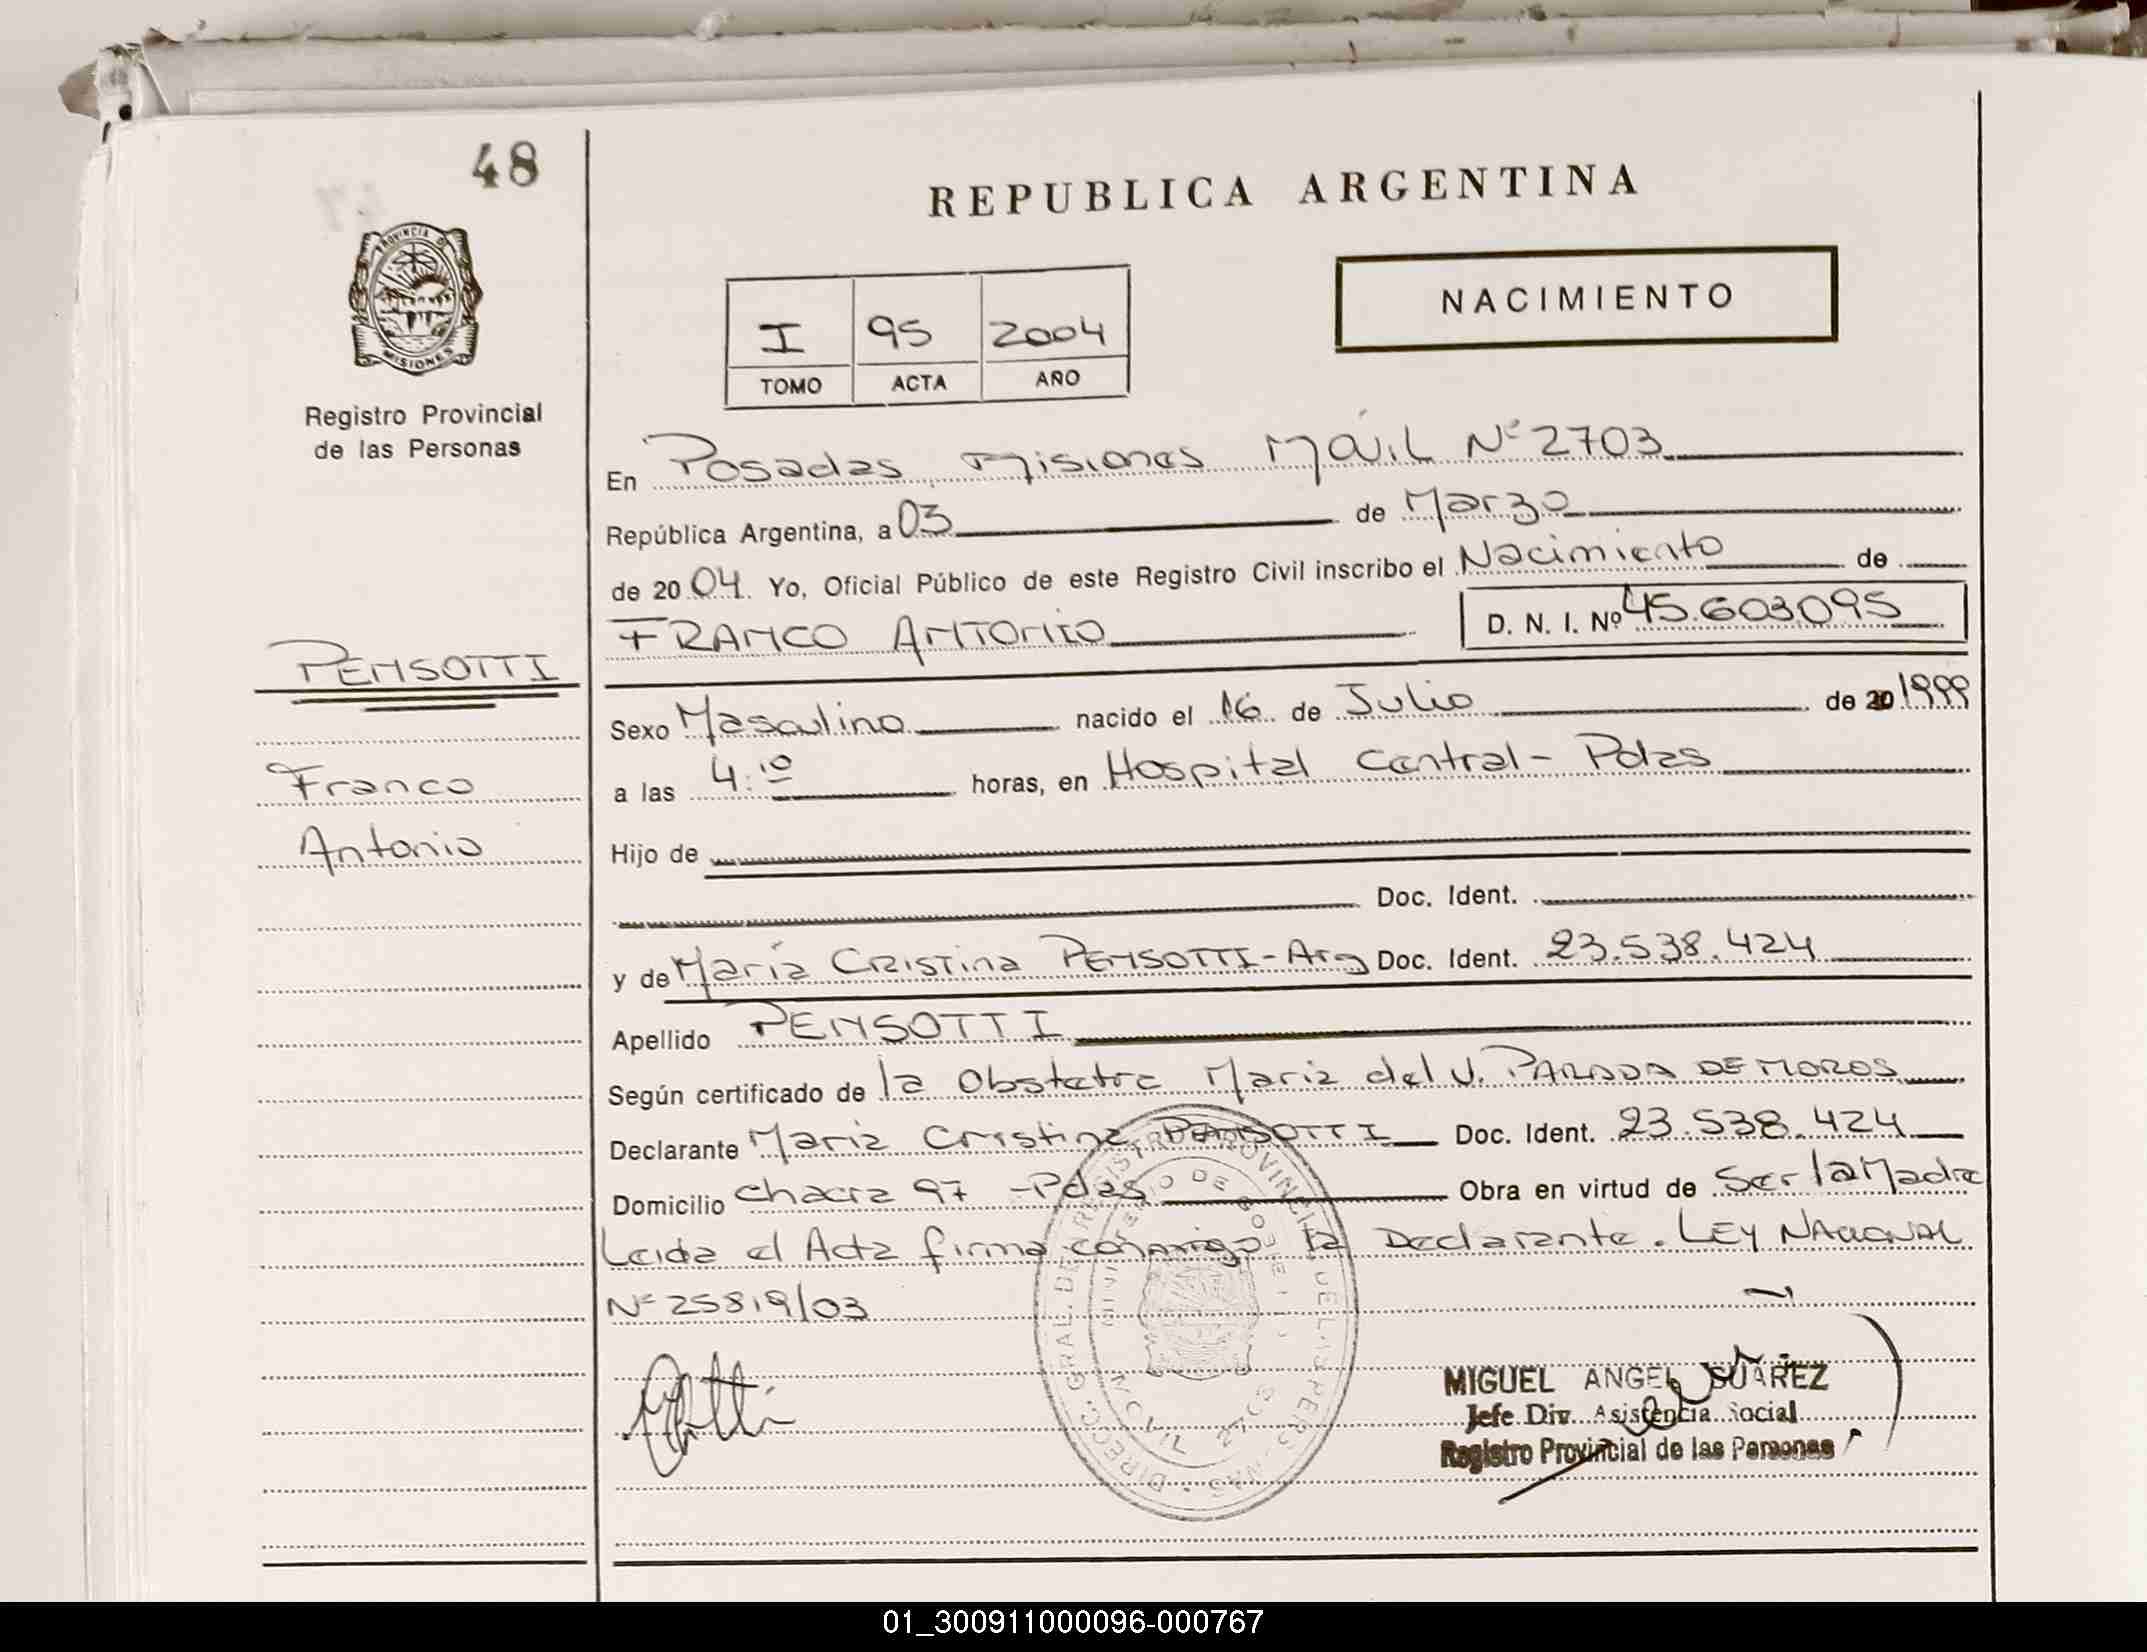 48
REPUBLICA ARGENTINA
PROVINCIA DE
MISIONES
Registro Provincial
de las Personas
NACIMIENTO
I 95 2004
TOMO ACTA AÑO
En Posadas, Misiones Móvil Nº 2703
República Argentina, a 03 de Marzo
de 2004. Yo, Oficial Público de este Registro Civil inscribo el Nacimiento de
FRANCO ANTONIO D. N. I. Nº 45.603.095
PENSOTTI
Franco
Antonio
Sexo Masculino nacido el 16 de Julio de 20 1999
a las 4:10 horas, en Hospital Central - Pdas
Hijo de
Doc. Ident.
y de María Cristina PENSOTTI - Arg Doc. Ident. 23.538.424
Apellido PENSOTTI
Según certificado de la Obstetra Maria del V. PARADA DE MOROS
Declarante Maria Cristina PENSOTTI Doc. Ident. 23.538.424
Domicilio Chacra 97 - Pdas Obra en virtud de Ser la Madre
Leida el Acta firma conmigo la Declarante. LEY NACIONAL
Nº 25819/03
MIGUEL ANGEL SUAREZ
Jefe Div. Asistencia Social
Registro Provincial de las Personas
01_300911000096-000767